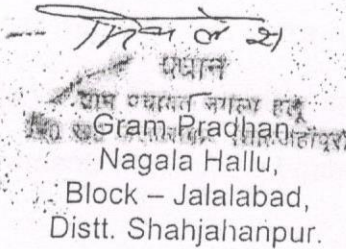 प्रधान
ग्राम पंचायत नगला हल्लू
Gram Pradhan,
Nagala Hallu,
Block – Jalalabad,
Distt. Shahjahanpur.